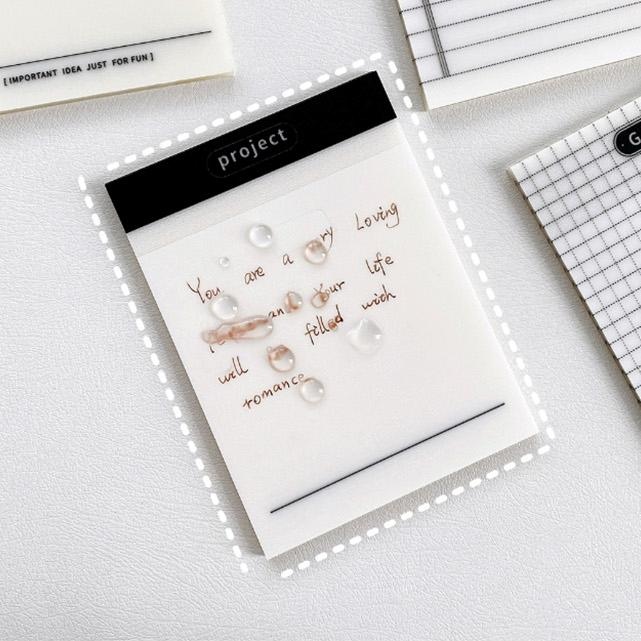 [ IMPORTANT IDEA JUST FOR FUN ]
project
You are a Loving
and your life
will filled with
romance
G